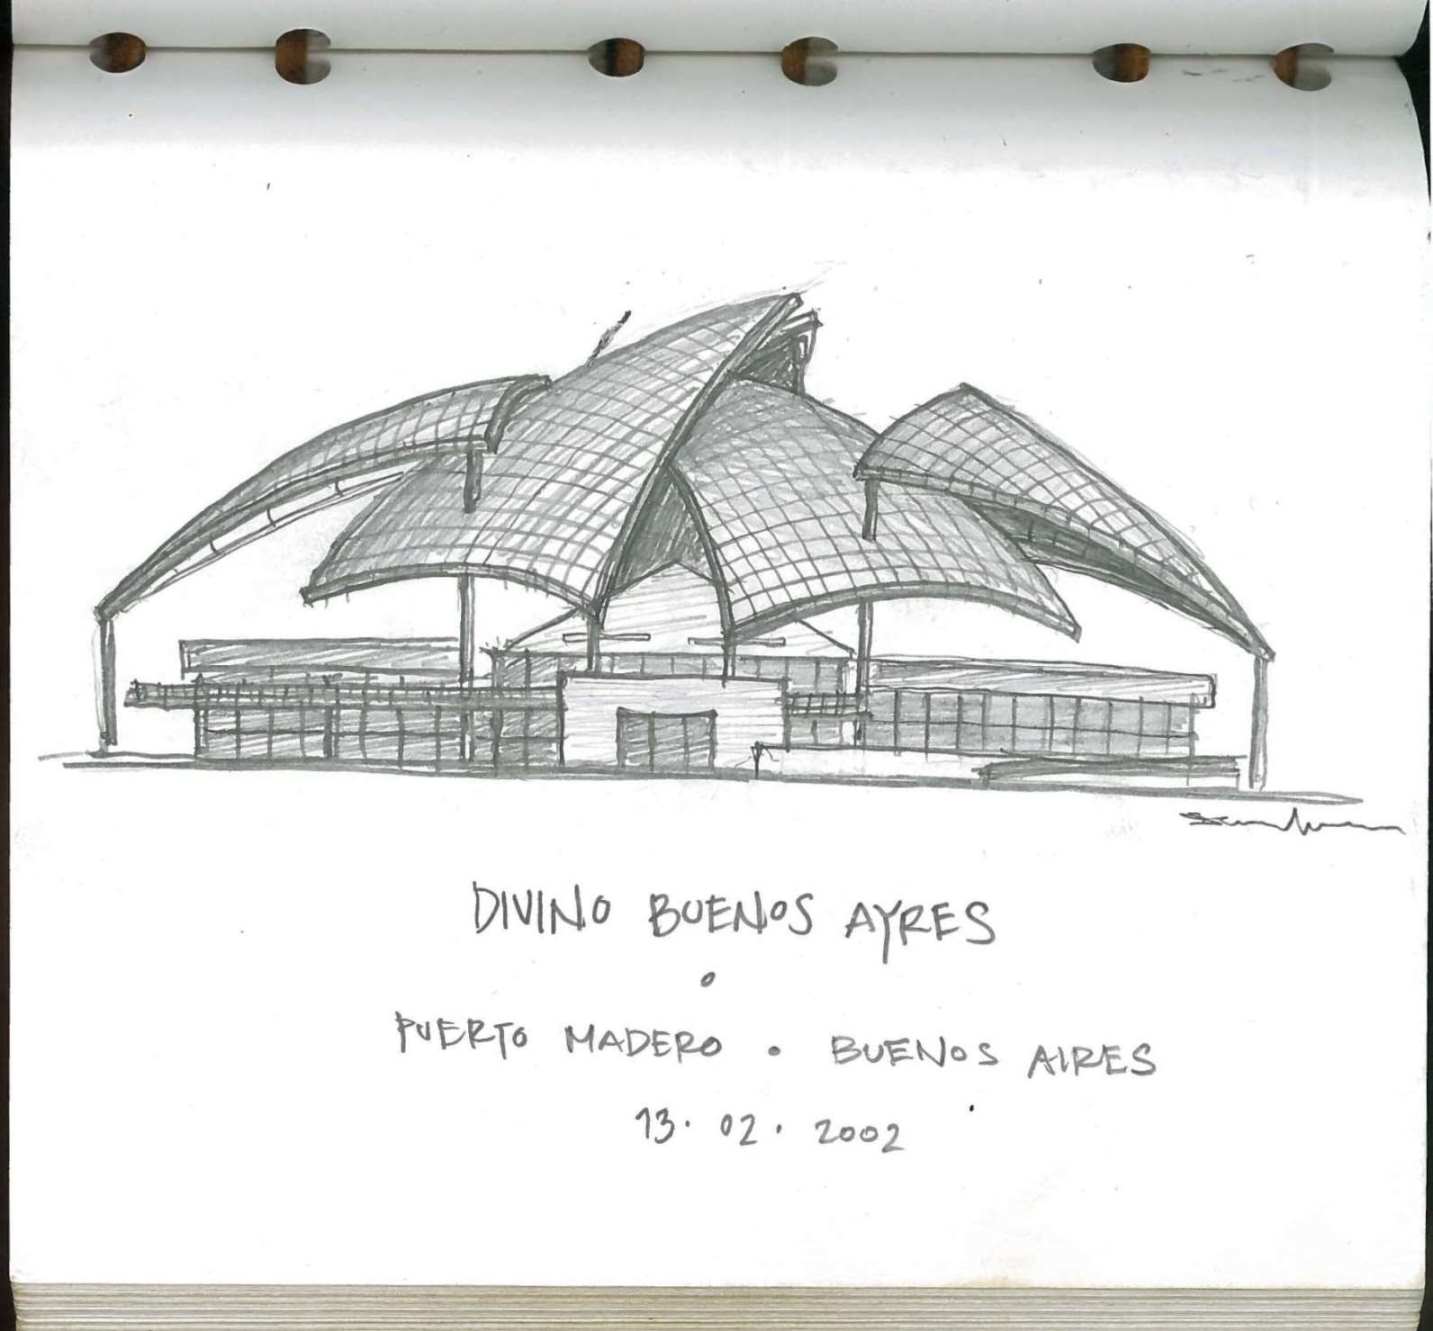 DIVINO BUENOS AYRES
PUERTO MADERO • BUENOS AIRES
13. 02. 2002